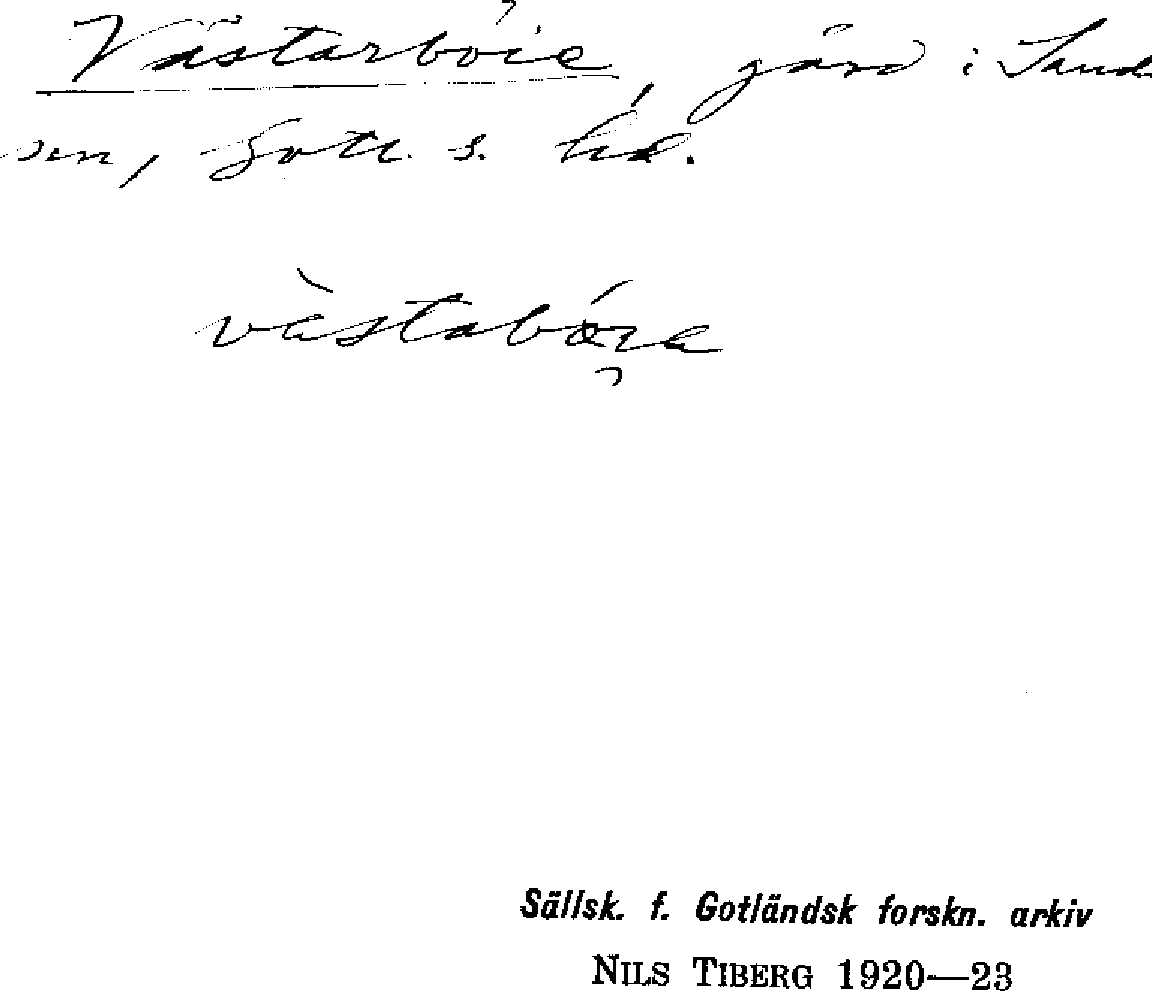 Västarböie, gård i Sand
sen, Gotl. s. hd.
västabɷra
Sällsk. f. Gotländsk forskn. arkiv
NILS TIBERG 1920—23